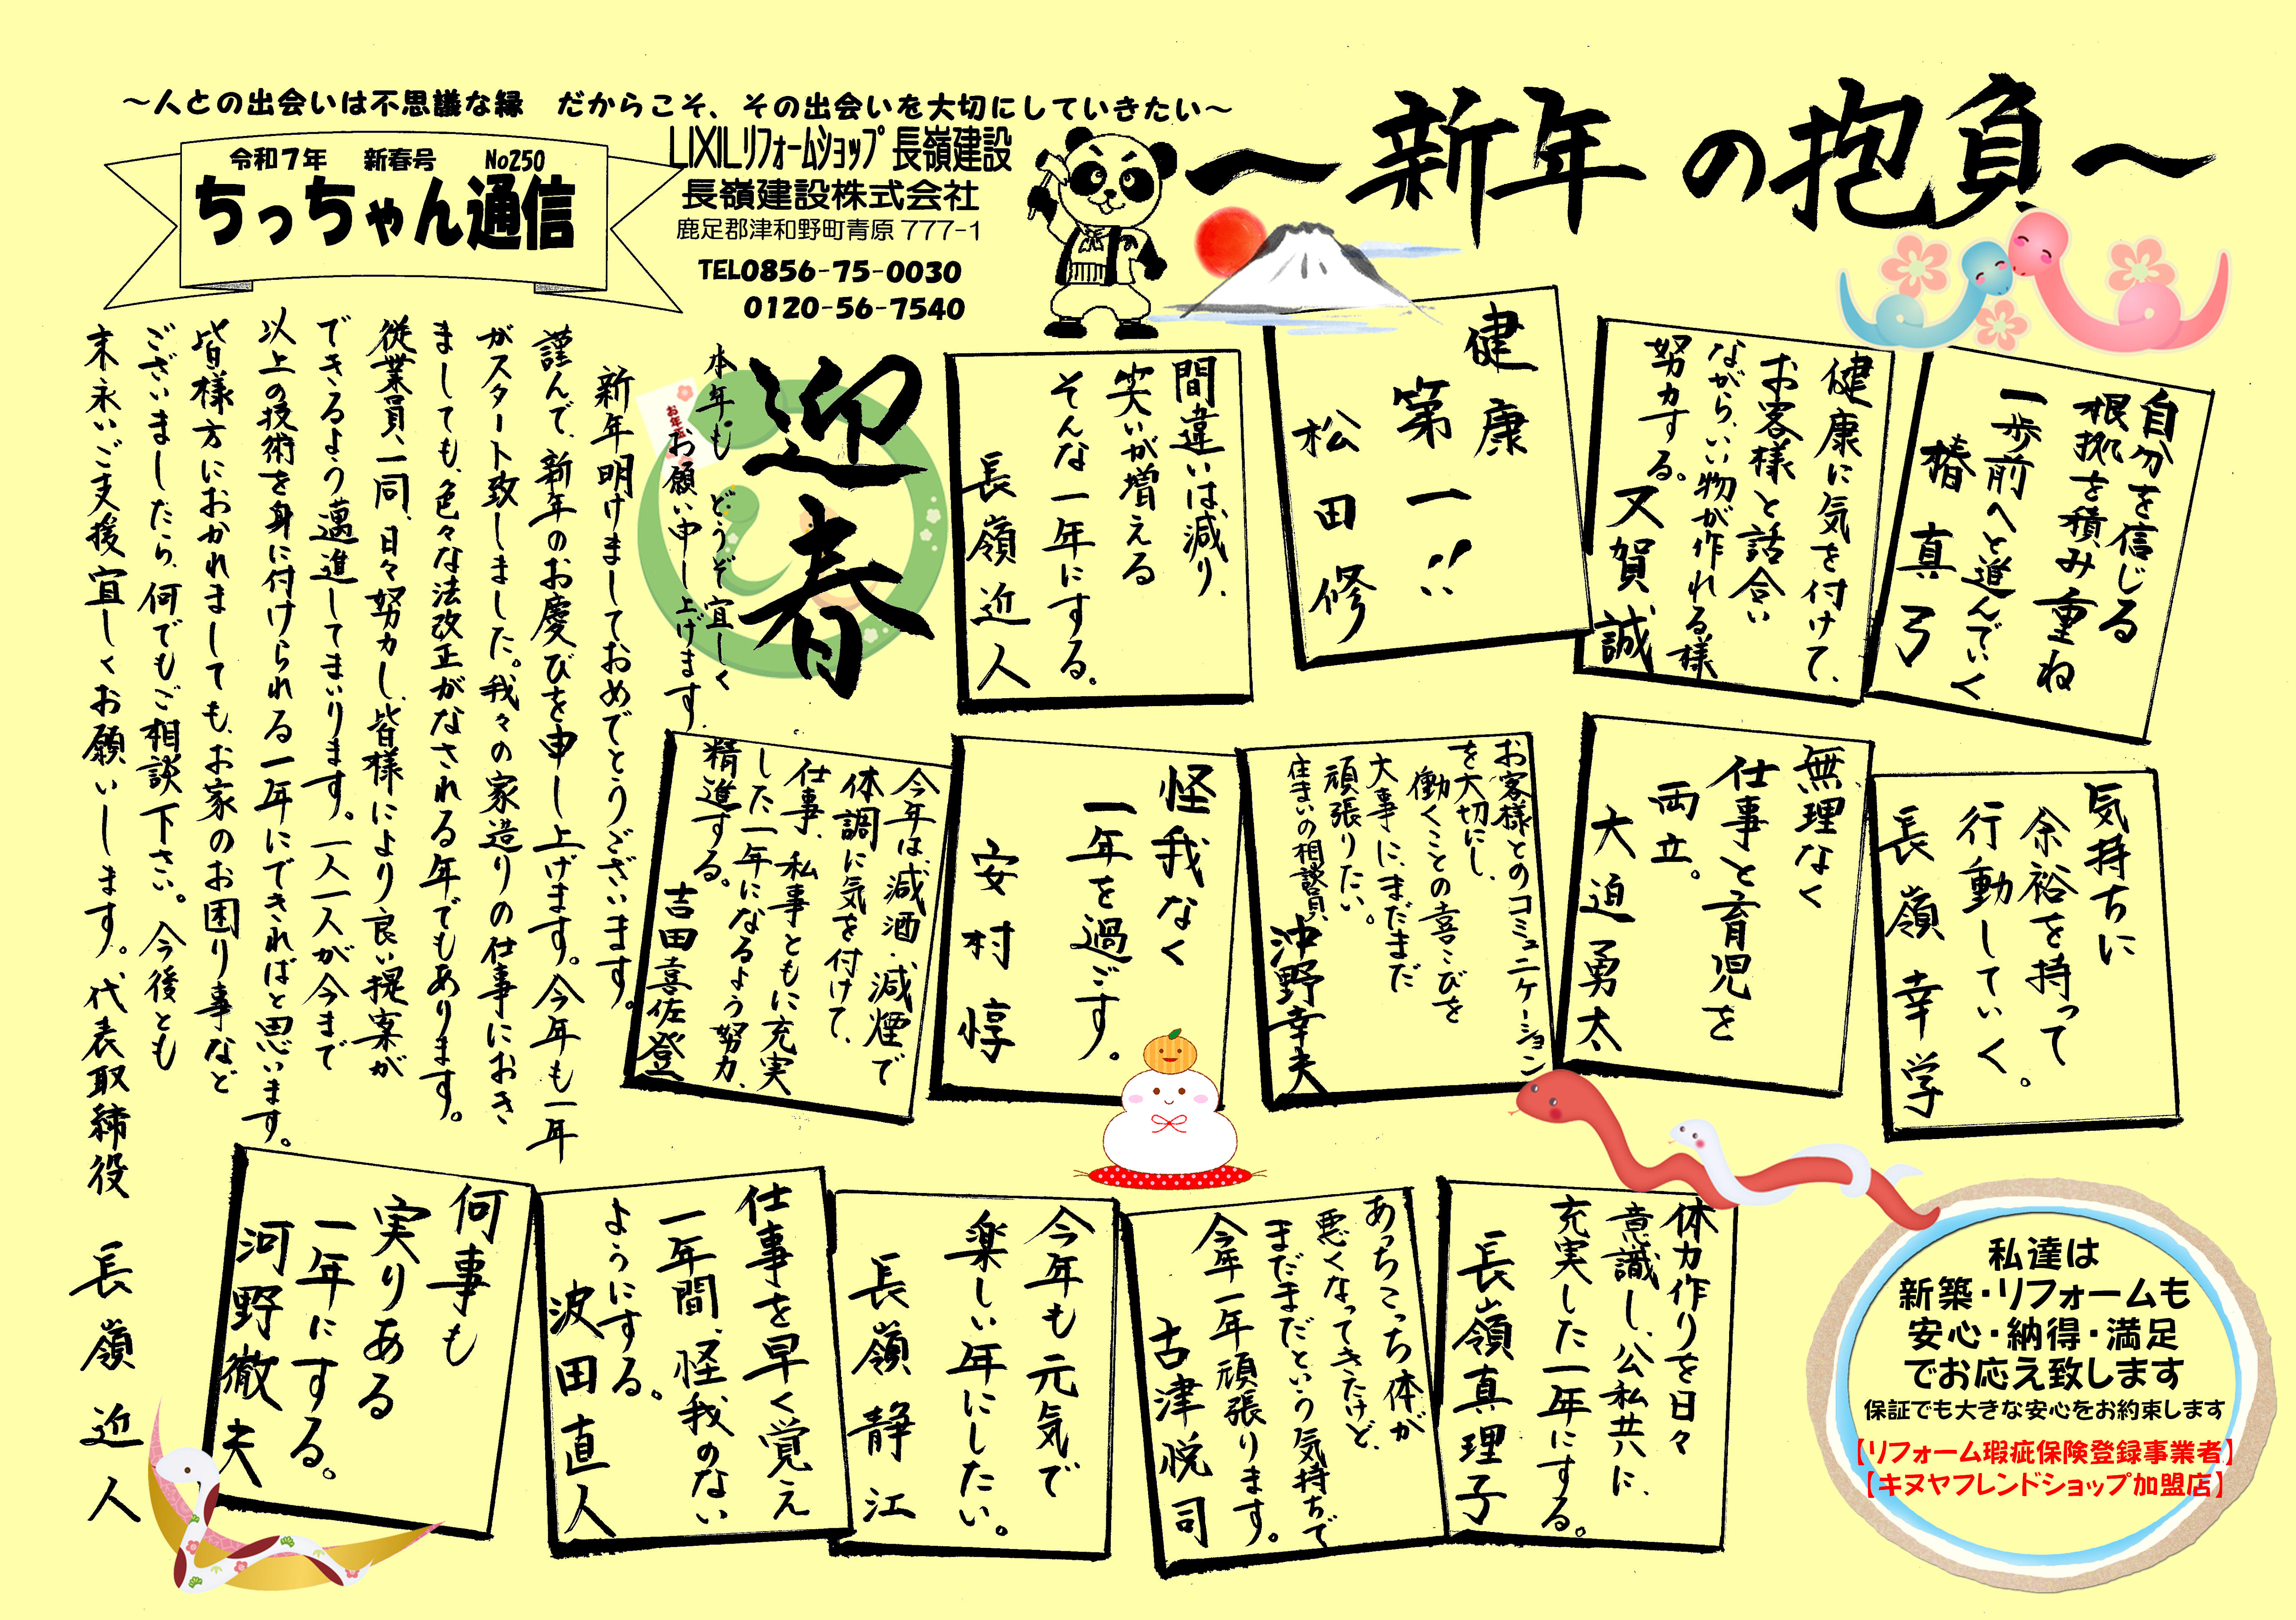 ～人との出会いは不思議な縁　だからこそ、その出会いを大切にしていきたい～
令和7年　新春号　No250
ちっちゃん通信
LIXILリフォームショップ 長嶺建設
長嶺建設株式会社
鹿足郡津和野町青原 777-1
TEL0856-75-0030
0120-56-7540
～新年の抱負～
迎春
お年玉
本年も　どうぞ宜しく
お願い申し上げます。
新年明けましておめでとうございます。
謹んで、新年のお慶びを申し上げます。今年も一年
がスタート致しました。我々の家造りの仕事におき
ましても、色々な法改正がなされる年でもあります。
従業員一同、日々努力し、皆様により良い提案が
できるよう邁進してまいります。一人一人が今まで
以上の技術を身に付けられる一年にできればと思います。
皆様方におかれましても、お家のお困り事など
ございましたら、何でもご相談下さい。今後とも
末永いご支援宜しくお願いします。代表取締役　長嶺近人
自分を信じる
根拠を積み重ね
一歩前へと進んでいく
椿真弓
健康に気を付けて、
お客様と話合い
ながら、いい物が作れる様
努力する。
又賀誠
健康
第一!!
松田修
間違いは、減り、
笑いが増える
そんな一年にする。
長嶺近人
気持ちに
余裕を持って
行動していく。
長嶺幸学
無理なく
仕事と育児を
両立。
大迫勇太
お客様とのコミュニケーション
を大切にし、
働くことの喜こびを
大事に、まだまだ
頑張りたい。
住まいの相談員
沖野幸夫
怪我なく
一年を過ごす。
安村惇
今年は、減酒・減煙で
体調に気を付けて、
仕事、私事ともに充実
した一年になるよう努力、
精進する。
吉田喜佐登
体力作りを日々
意識し、公私共に、
充実した一年にする。
長嶺真理子
あっちこっち体が
悪くなってきたけど、
まだまだという気持ちで
今年一年頑張ります。
古津悦司
今年も元気で
楽しい年にしたい。
長嶺静江
仕事を早く覚え
一年間、怪我のない
ようにする。
波田直人
何事も
実りある
一年にする。
河野徹夫
私達は
新築・リフォームも
安心・納得・満足
でお応え致します
保証でも大きな安心をお約束します
【リフォーム瑕疵保険登録事業者】
【キヌヤフレンドショップ加盟店】